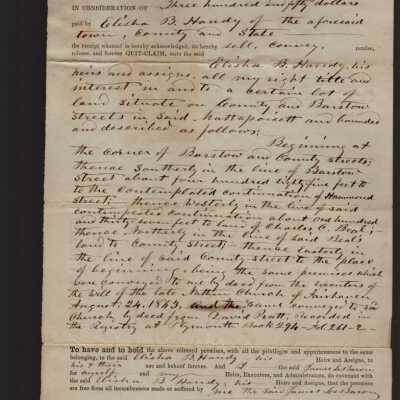 IN CONSIDERATION OF Three hundred and fifty dollars
paid by Elisha B. Handy of the aforesaid
town, County and State
the receipt whereof is hereby acknowledged, do hereby sell, convey, remise,
release, and forever QUIT-CLAIM, unto the said
Elisha B. Handy, his
heirs and assigns, all my right title and
interest in and to a certain lot of
land situate on County and Barstow
Streets in said Mattapoisett and bounded
and described as follows;
Beginning at
the corner of Barstow and County streets;
thence Southerly in the line of Barstow
Street about four hundred feet to
to the Contemplated continuation of Hammond
Street; thence Westerly in the line of said
contemplated continuation about one hundred
and thirty feet to land of Charles C. Beal;
thence Northerly in the line of said Beal's
land to County Street; thence Easterly in
the line of said County street to the place
of beginning, being the same premises which
were conveyed to me by deed from the executors of
the Will of the late Church of Fairhaven
August 24, 1863, and the same conveyed to
Church by deed from David Pratt, recorded in
the Registry at Plymouth Book 294 - Fol 261-2
To have and to hold the above released premises, with all the privileges and appurtenances to the same
belonging, to the said Elisha B. Handy his Heirs and Assigns, to
his & their use and behoof forever. And I the said James
for myself and my Heirs, Executors, and Administrators, do covenant with
the said Elisha B. Handy, his Heirs and Assigns, that the premises
are free from all incumbrances made or suffered by me the said James